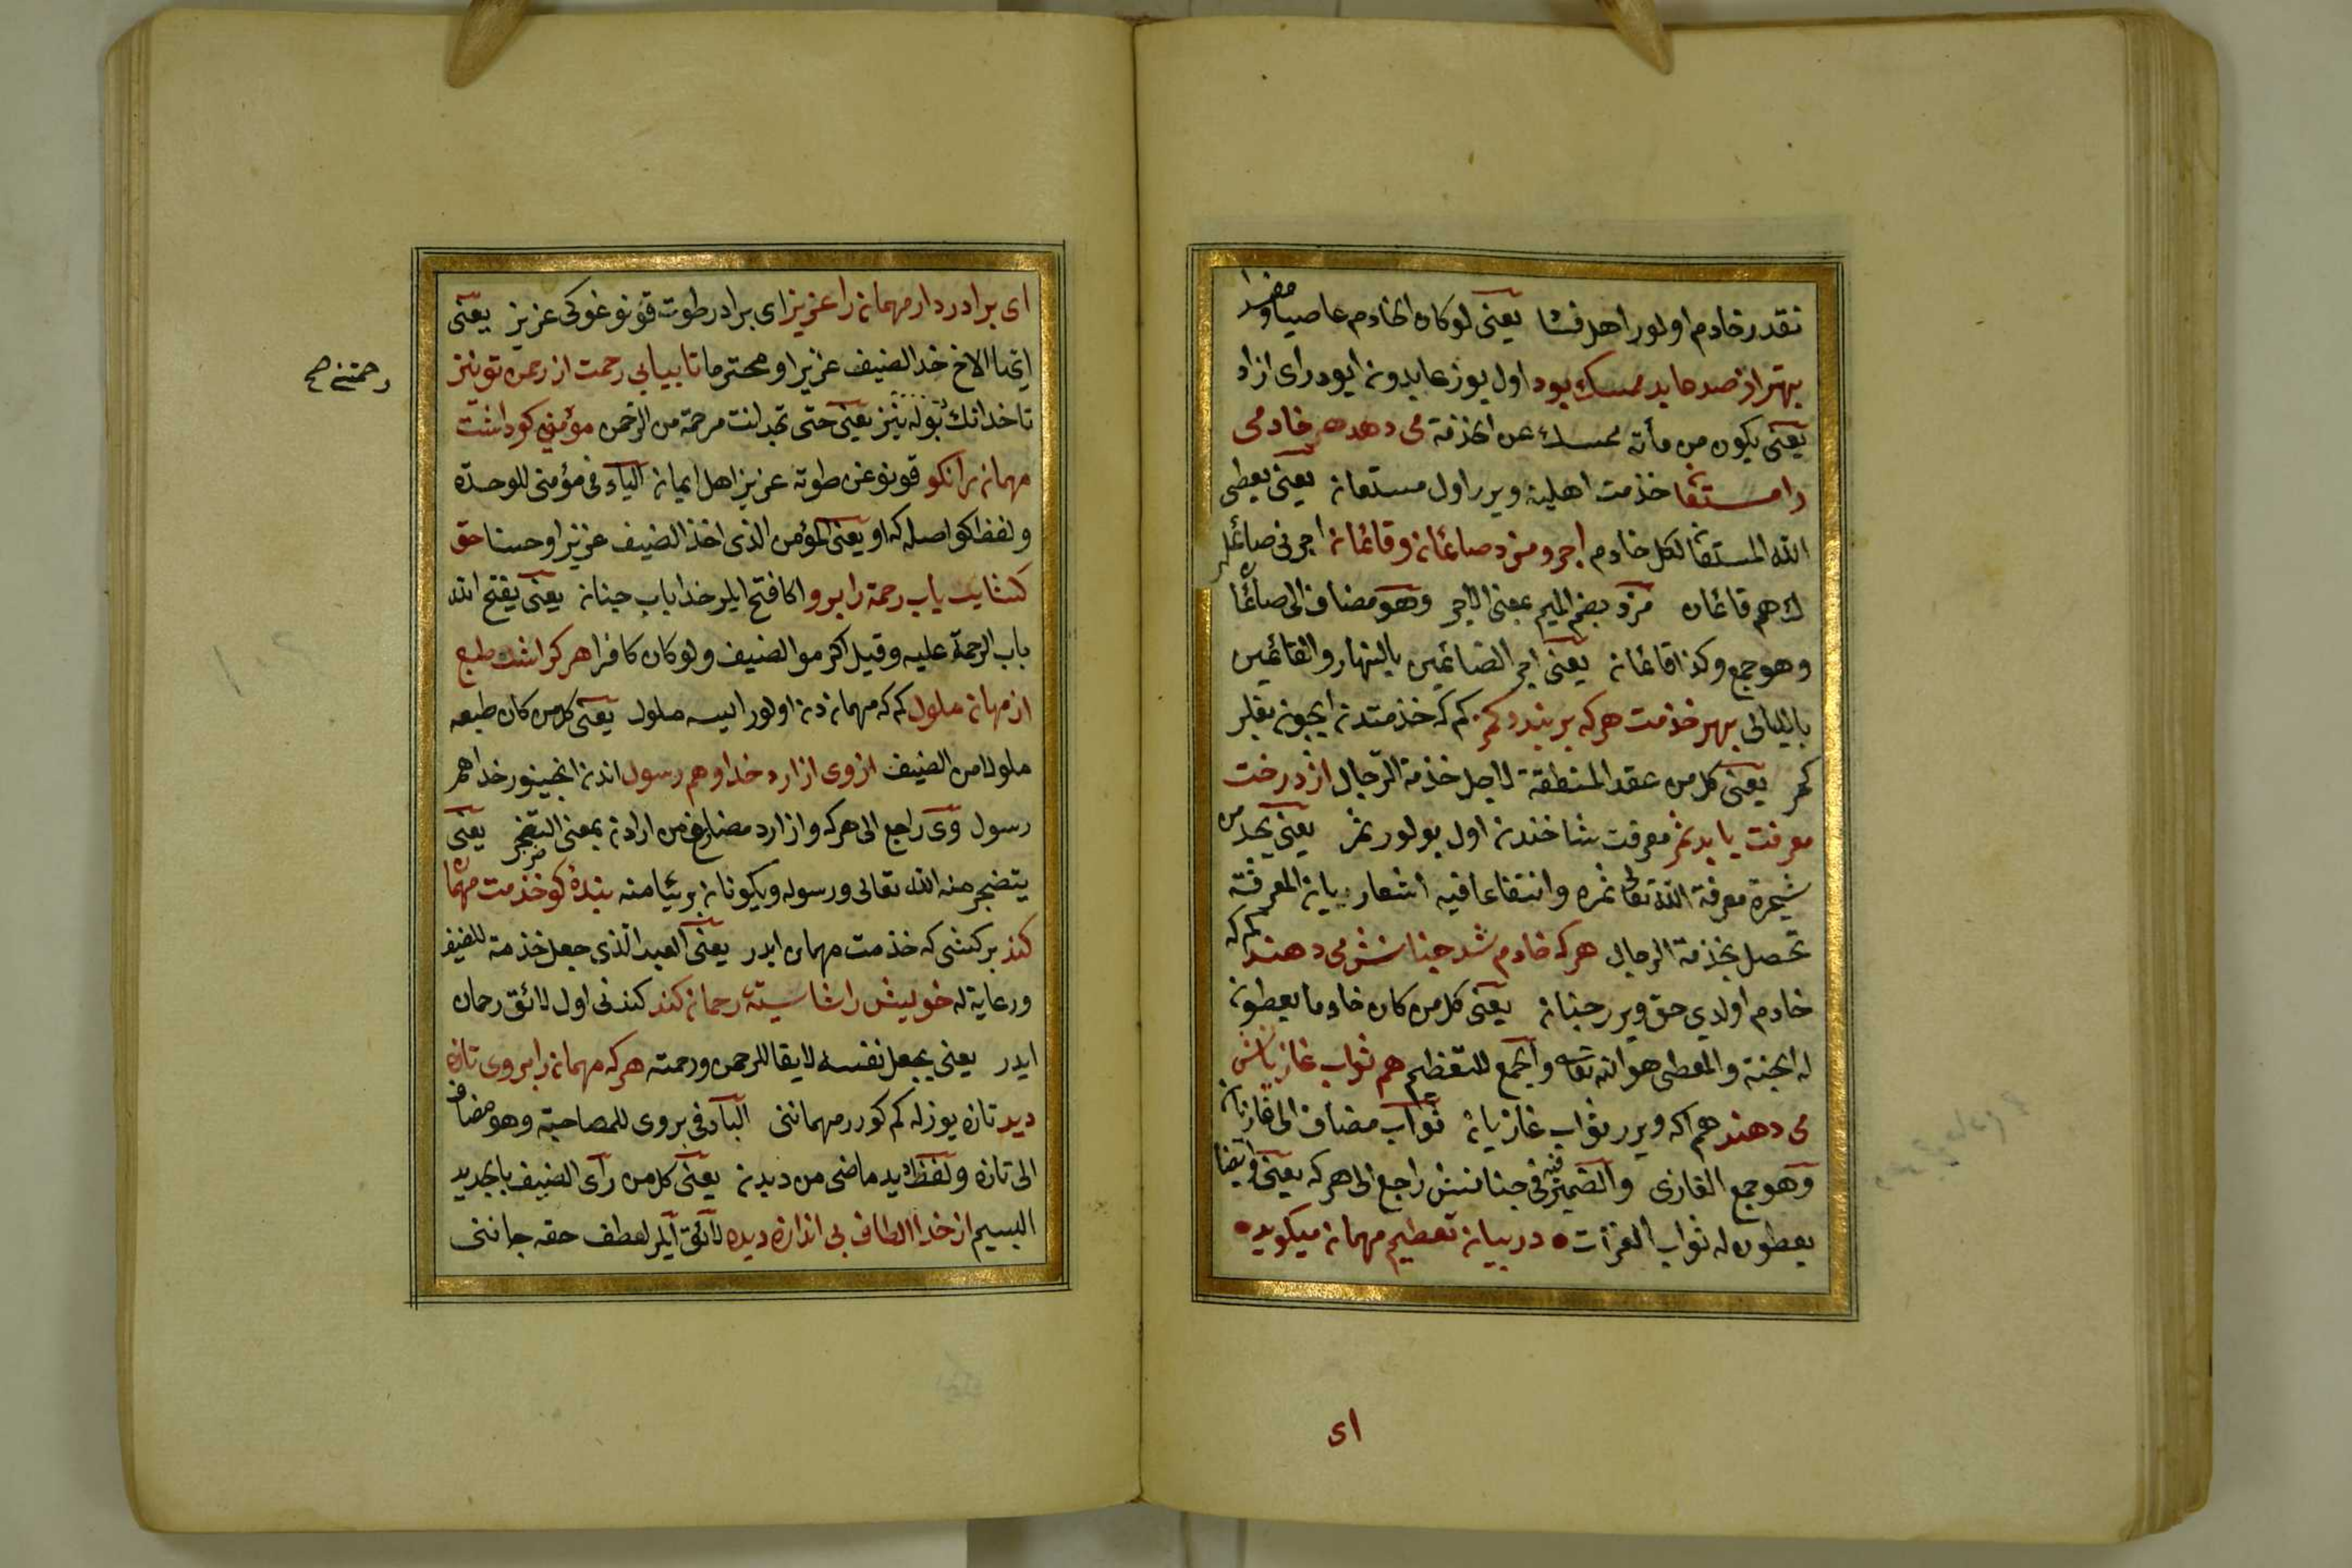 نقدر خادم اولور اهل فسا يعنى لوكان الخادم عاصيا و مفسدا
بهتر از صد عابد ممسك بود اول يوز عابدونه ايودر اى ازاد
يعنى يكون من مأته ممسك عن الخذمة مى دهد هر خادمى
را مستعان خذمت اهلينه ويرر اول مستعانه يعنى يعطى
الله المستعان لكل خادم اجر و مزد صائمانه و قائمانه اجرنى صائملر
لك هم قائمان مزد بضم الميم بمعنى الاجر وهو مضاف الى صائما
وهو جمع وكذا قائمانه يعنى اجر الصائمين بالنهار والقائمين
بالليالى بهر خذمت هركه بر بندد كمر كم كه خذمتدنه ايچونه بغلر
كمر يعنى كل من عقد المنطقة لاجل خذمة الرجال از درخت
معرفت يابد ثمر معرفت شاخندنه اول بولور ثمر يعنى يجد من
شجرة معرفة الله تعالى ثمره وانتفاعا فيه اشعار بيانه المعرفة
تحصل بخذمة الرجال هركه خادم شد جنانش مى دهند كم كه
خادم اولدى حق ويرر جنانه يعنى كل من كان خادما يعطونه
له الجنة والمعطى هو الله تعالى والجمع للتعظيم هم ثواب غازيانش
مى دهند هم اكه ويرر ثواب غازيانه ثواب مضاف الى غازيانه
وهو جمع الغازى والضمير فى جنانش راجع الى هركه يعنى وايضا
يعطون له ثواب الغزات • در بيانه تعظيم مهمانه ميكويد •
اى
اى برادر دار مهمانه را عزيز اى برادر طوت قونوغوكى عزيز يعنى
ايها الاخ خذ الضيف عزيزا ومحترما تا بيابى رحمت از رحمن تو نيز
تا خدانك بوله‌سنز يعنى حتى تجد انت مرحمة من الرحمن مؤمنى كو داشت
رحمتنى صح
مهمانه را نكو قونوغن طوته عزيز اهل ايمانه الياء فى مؤمنى للوحدة
ولفظ كو اصله كه او يعنى المؤمن الذى اخذ الضيف عزيزا وحسنا حق
كشايد باب رحمة را برو اكا فتح ايلر خدا باب جنانه يعنى يفتح الله
باب الرحمة عليه وقيل اكرموا الضيف ولو كان كافرا هركرا شد طبع
از مهمانه ملول كم كه مهمانه‌دنه اولور ايسه ملول يعنى كل من كان طبعه
ملولا من الضيف از وى ازارد خدا وهم رسول اندنه انجينور خدا هم
رسول وى راجع الى هركه و ازارد مضارع من ازادنه بمعنى التضجر يعنى
يتضجر منه الله تعالى ورسوله ويكونانه بريئا منه بندهٔ كو خذمت مهما
كند بر كشى كه خذمت مهمان ايدر يعنى العبد الذى جعل خذمة للضيف
ورعاية له خويش را شايستهٔ رحمانه كند كندنى اول لائق رحمان
ايدر يعنى يجعل نفسه لايقا للرحمن ورحمته هركه مهمانه را بروى تازه
ديد تازه يوزله كم كورر مهماننى الباء فى بروى للمصاحبة وهو مضاف
الى تازه ولفظ ديد ماضى من ديدنه يعنى كل من رأى الضيف بالجديد
البسيم از خدا الطاف بى اندازه ديده لائق ايلر لطف حقه جاننى